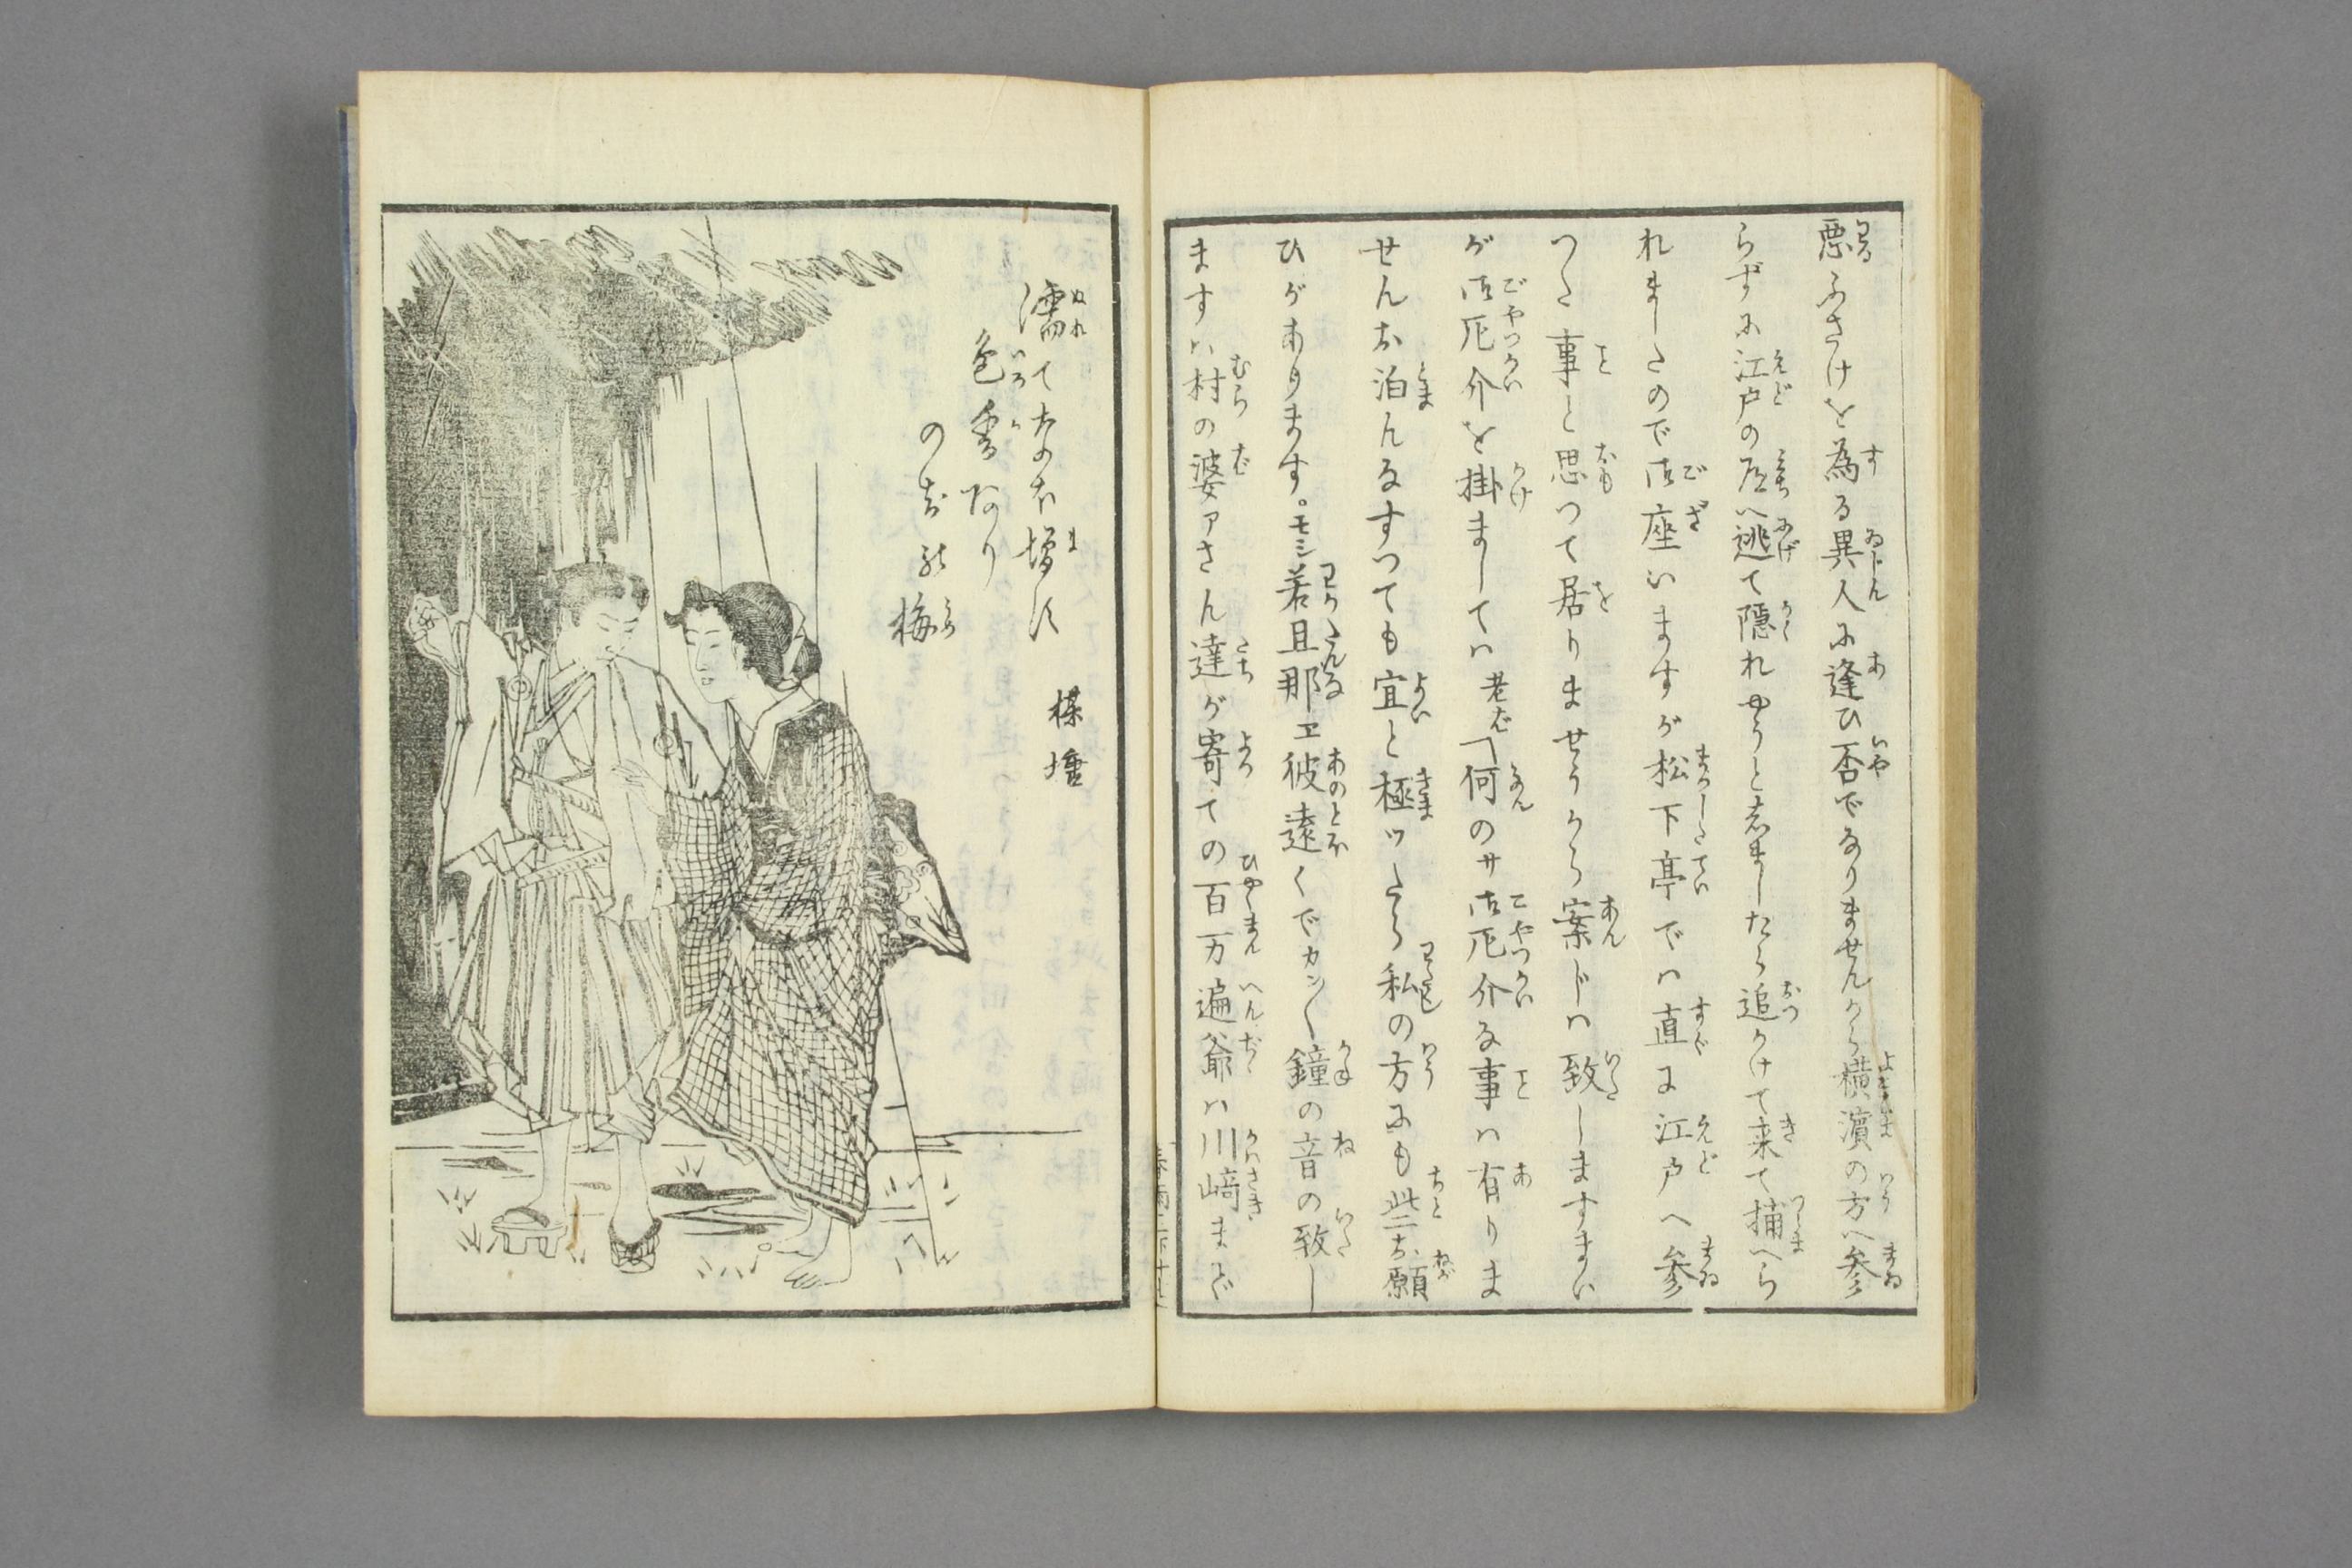 悪ふさけを為る異人に逢ひ否でなりませんから横濱の方へ参
らずに江戸の方へ逃て隠れやうと志ましたら追かけて来て捕へら
れましたので御座いますが松下亭では直に江戸へ参
つた事と思つて居りませうから案じは致しますまい
が御厄介を掛ましては 老婆「何のサ御厄介な事は有りま
せんお泊んなすつても宜と極ツたら私の方にも些お願
ひがあります。モシ若旦那ヱ彼遠くでカン〳〵鐘の音の致し
ますは村の婆アさん達が寄ての百万遍爺は川﨑まで
濡てなほ増す
色香あり
の梅